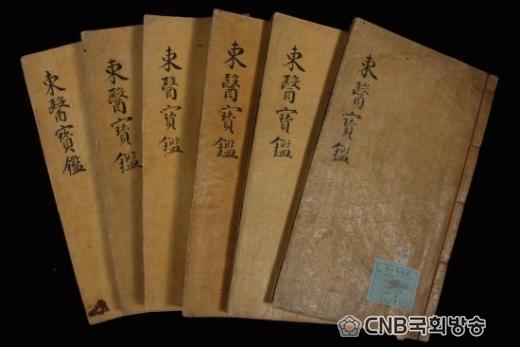 東醫寶鑑
東醫寶鑑
東醫寶鑑
東醫寶鑑
東醫寶鑑
東醫寶鑑
CNB국회방송